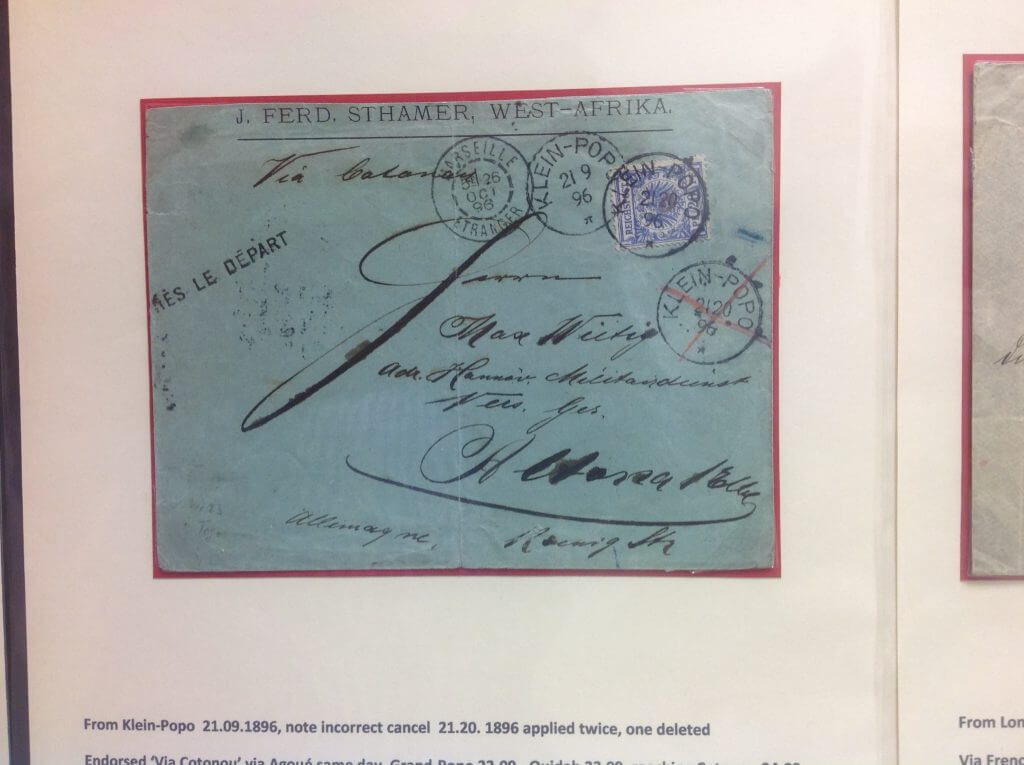 J. FERD. STHAMER, WEST-AFRIKA.
Via Cotonou
MARSEILLE
26
OCT
96
ETRANGER
KLEIN-POPO
21 9
96
KLEIN-POPO
21 20
96
REICHSPOST
RÈS LE DÉPART
Herrn
KLEIN-POPO
21 20
96
Max Wittig
adr. Hannöv. Militairdienst
Vers. Ges.
Altona / Elbe
Allemagne,
Koenig Str
From Klein-Popo 21.09.1896, note incorrect cancel 21.20. 1896 applied twice, one deleted
Endorsed 'Via Cotonou' via Agoué same day, Grand-Popo 22.09
From Lon
Via Frenc